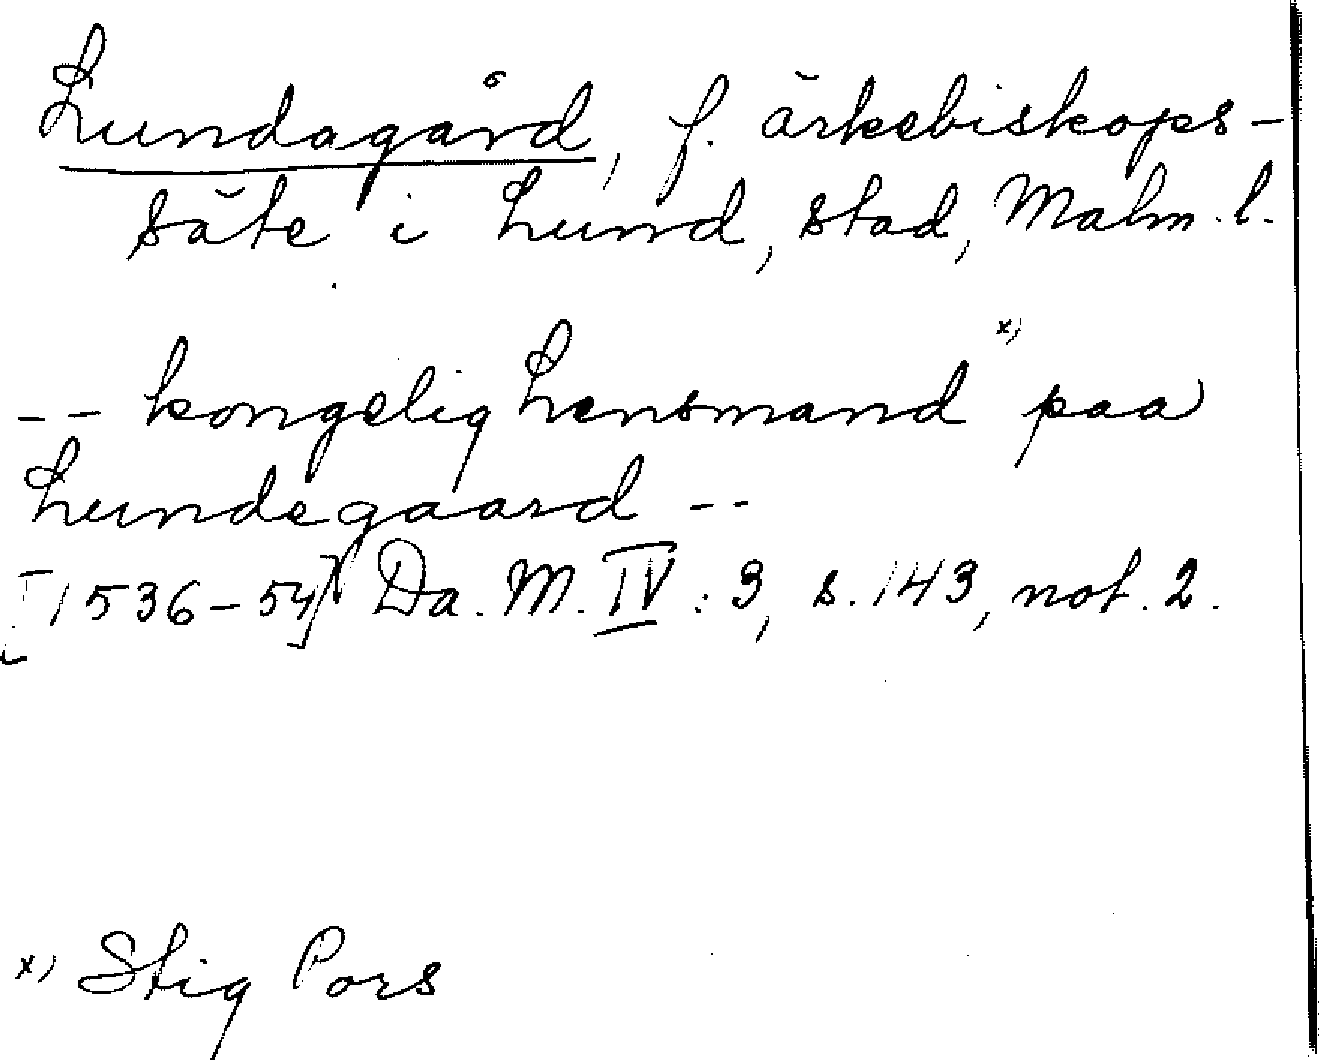 Lundagård, f. ärkebiskops-
säte i Lund, stad, Malm. l.
-- kongelig Lensmand x) paa
Lundegaard --
[1536-54] Da. M. IV : 3, s. 143, not. 2.
x) Stig Pors